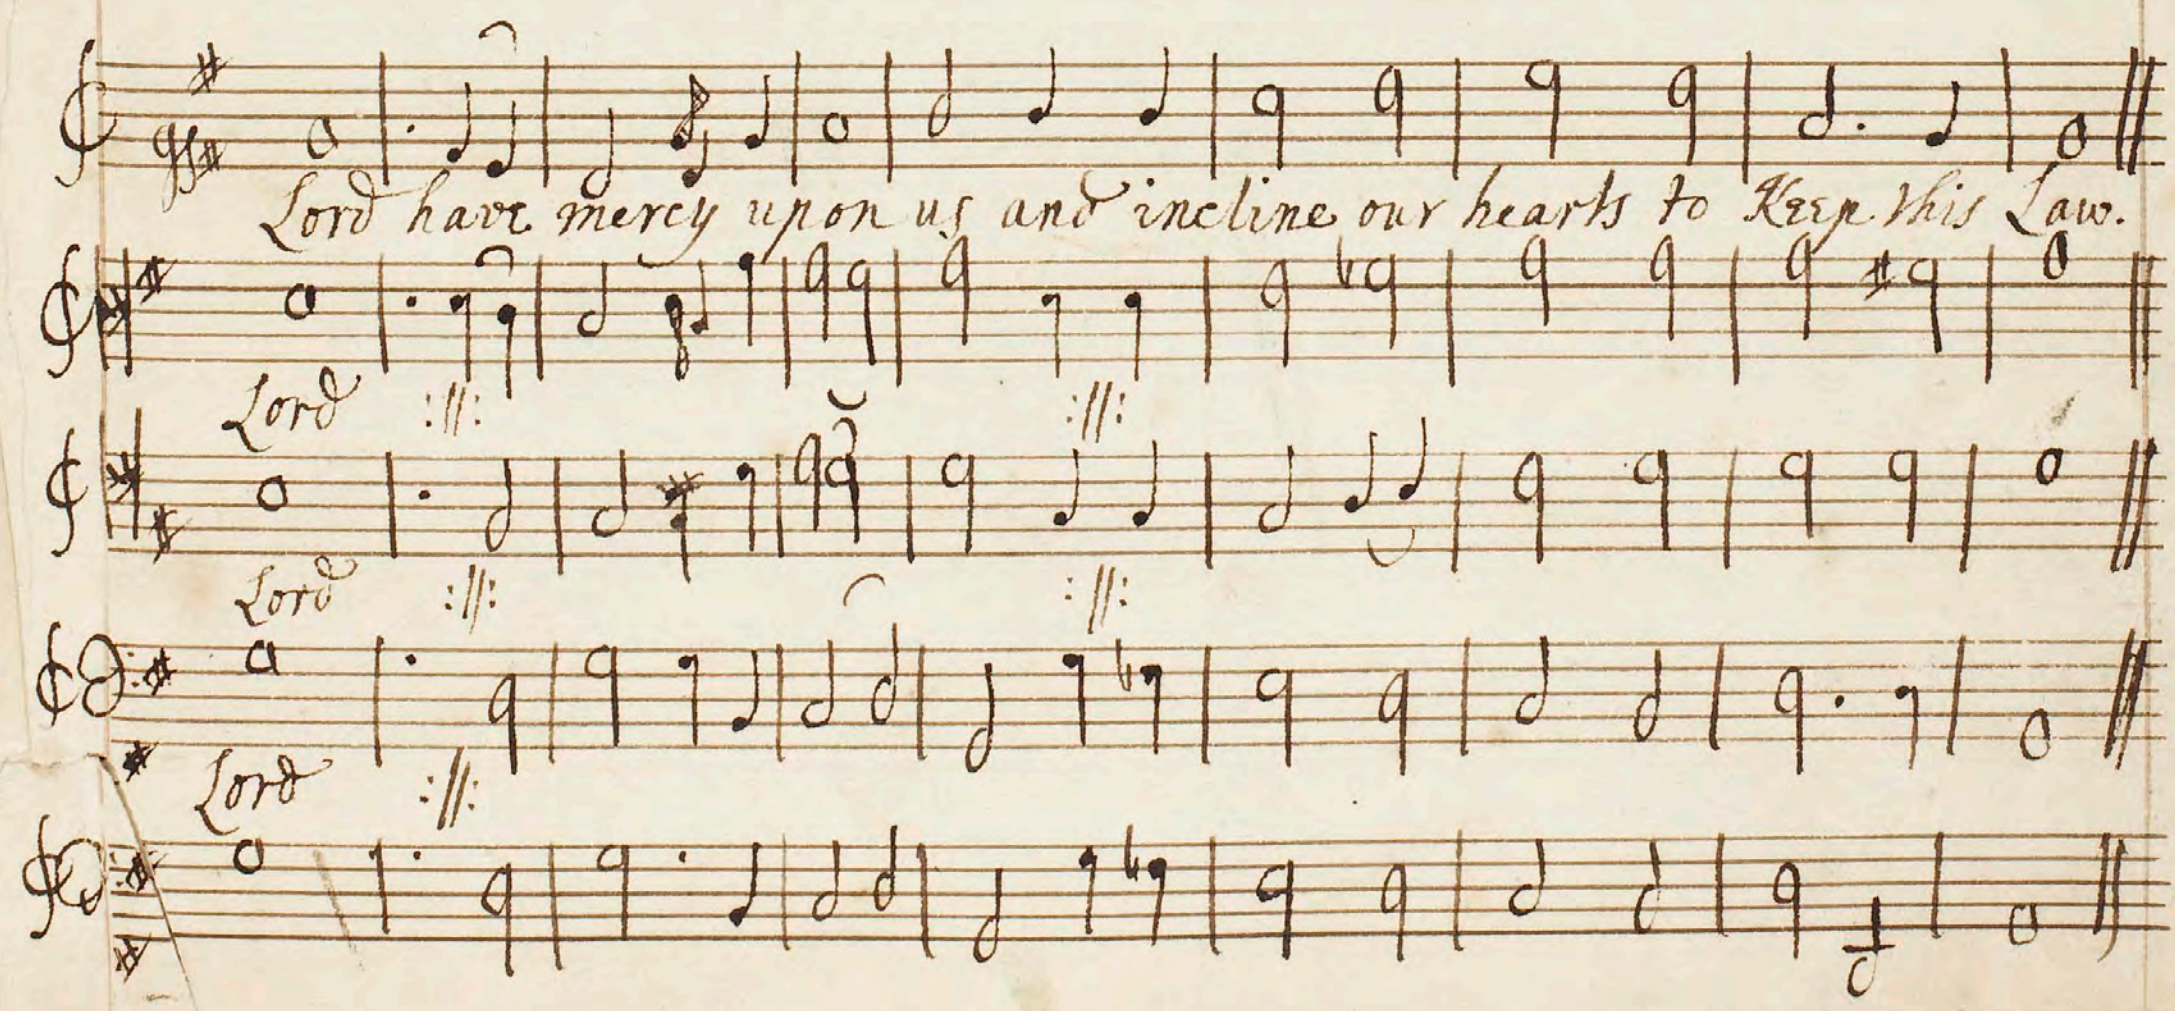 Lord have mercy upon us and incline our hearts to Keep this Law.
Lord :||: :||:
Lord :||: :||:
Lord :||: